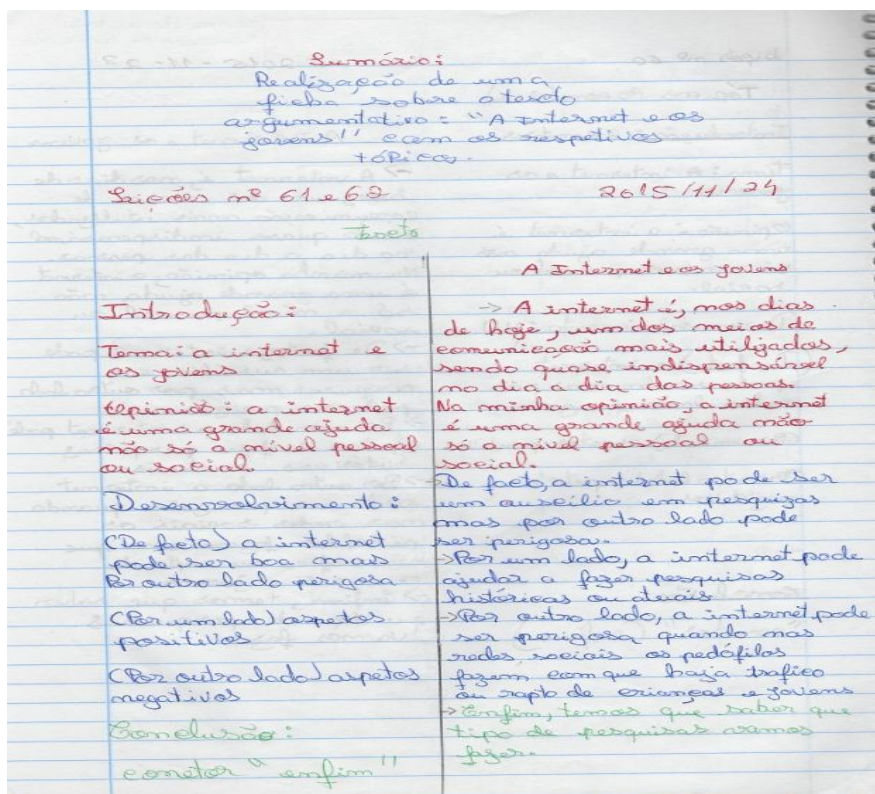 Sumário:
Realização de uma
ficha sobre o texto
argumentativo: "A Internet e os
jovens" e com os respetivos
tópicos.
Lições nº 61 e 62 2015/11/24
Texto
Introdução:
Tema: a internet e
os jovens
Opinião: a internet
é uma grande ajuda
não só a nível pessoal
ou social.
Desenvolvimento:
(De facto) a internet
pode ser boa mais
Por outro lado perigosa
(Por um lado) aspetos
positivos
(Por outro lado) aspetos
negativos
Conclusão:
conetor "enfim"
A Internet e os jovens
→ A internet é, nos dias
de hoje, um dos meios de
comunicação mais utilizados,
sendo quase indispensável
no dia a dia das pessoas.
Na minha opinião, a internet
é uma grande ajuda não
só a nível pessoal ou
social.
De facto, a internet pode ser
um auxílio em pesquizas
mas por outro lado pode
ser perigosa.
→ Por um lado, a internet pode
ajudar a fazer pesquisas
históricas ou atuais
→ Por outro lado, a internet pode
ser perigosa quando nas
redes sociais os pedófilos
fazem com que haja trafico
ou rapto de crianças e jovens
→ Enfim, temos que saber que
tipo de pesquisas vamos
fazer.